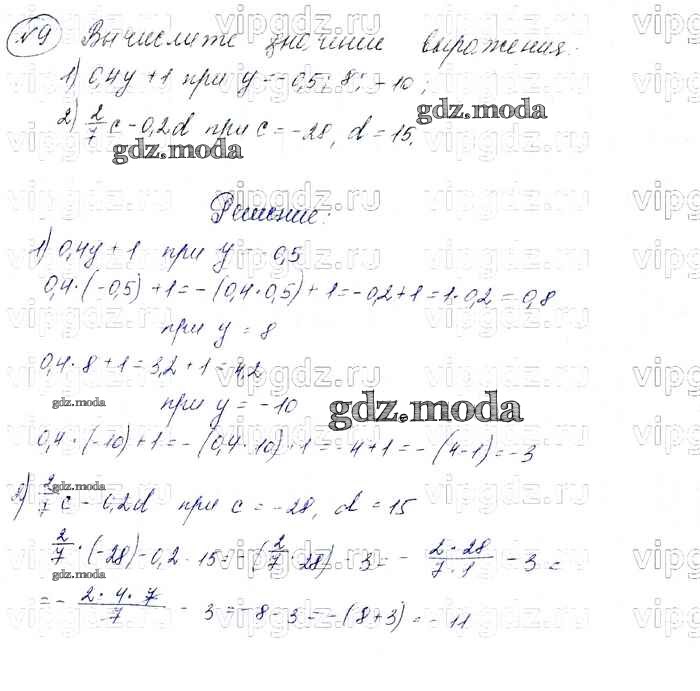 №9 Вычислите значение выражения:
1) 0,4y + 1 при y = -0,5; 8; -10;
2) 2/7 c - 0,2d при c = -28, d = 15.
gdz.moda
gdz.moda
Решение:
1) 0,4y + 1 при y = 0,5
0,4 · (-0,5) + 1 = - (0,4 · 0,5) + 1 = -0,2 + 1 = 1 · 0,2 = 0,8
при y = 8
0,4 · 8 + 1 = 3,2 + 1 = 4,2
gdz.moda
при y = -10
gdz.moda
0,4 · (-10) + 1 = - (0,4 · 10) + 1 = -4 + 1 = - (4-1) = -3
gdz.moda
2) 2/7 c - 0,2d при c = -28, d = 15
2/7 · (-28) - 0,2 · 15 = - (2/7 · 28) - 3 = - 2 · 28 / 7 · 1 - 3 =
gdz.moda
= - 2 · 4 · 7 / 7 - 3 = -8 - 3 = - (8+3) = -11
vipgdz.ru